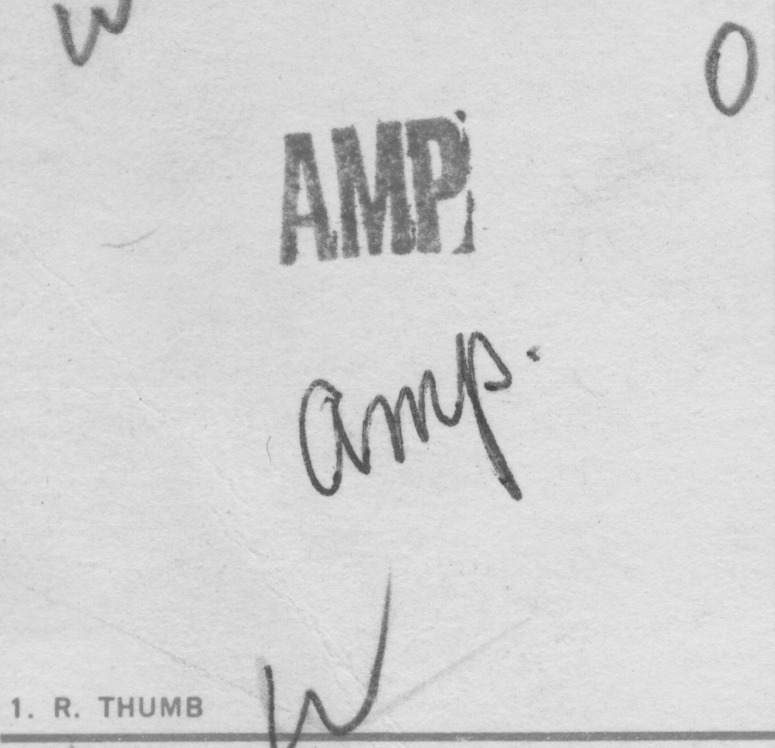 W
O
AMP
amp.
W
1. R. THUMB